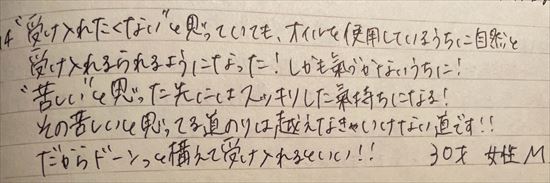 "受け入れたくない"と思っていても、オイルを使用しているうちに自然と
受け入れるられるようになった！しかも氣づかないうちに！
"苦しい"と思った先にはスッキリした氣持ちになる！
その苦しいと思ってる道のりは越えなきゃいけない道です！！
だからドーンっと構えて受け入れるといい！！ 30才 女性 M